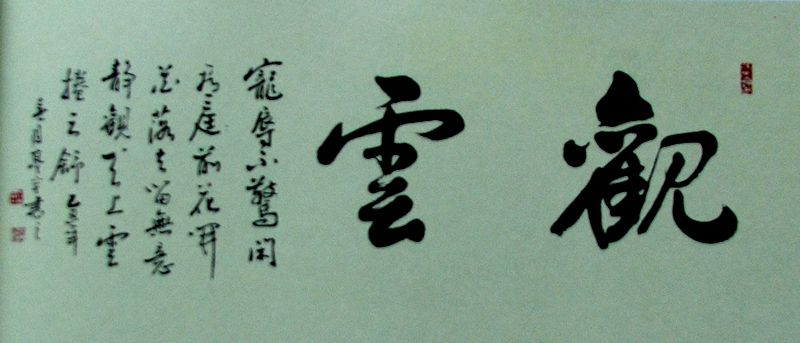 觀雲
寵辱不驚閑
看庭前花開
花落去留無意
靜觀天上雲
捲云舒